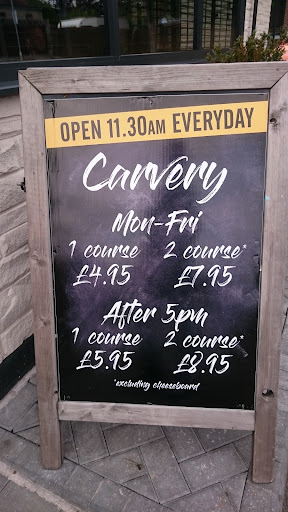 OPEN 11.30AM EVERYDAY
Carvery
Mon-Fri
1 course 2 course*
£4.95 £7.95
After 5pm
1 course 2 course*
£5.95 £8.95
*excluding cheeseboard